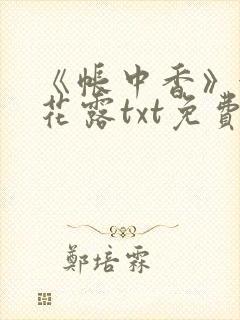 《帳中香》
花露txt免費
鄭培霖